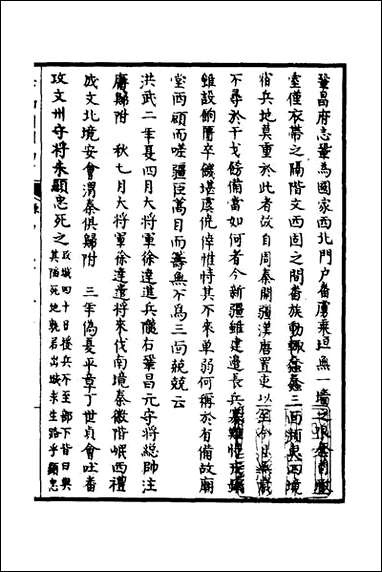 鞏昌府志鞏為國家西北門户畨虜乘垣無一墻之限
室僅衣帶之隔階文西固之間畨族動輒蠢蠢三面瀕夷四境
宿兵地莫重於此者故自周秦開疆漢唐置吏以至
不尋於干戈餝備當如何者今新疆雖建邉長兵
雖設餉匱卒饑堪虞倪倖惟恃其不來單弱何稱於有備故廟
堂西顧而嗟疆臣萬目而籌無不為三面兢兢云
洪武二年夏四月大將軍徐達進兵隴右鞏昌元守將緫帥汪
庸歸附 秋七月大將軍徐達遣將來伐南境秦徽階岷西禮
成文北境安會渭秦俱歸附 三年偽夏平章丁世貞會吐畨
攻文州守將朱顯忠死之攻城四十日援兵不至部下皆曰與
其陷死地孰若出城求生路乎顯忠